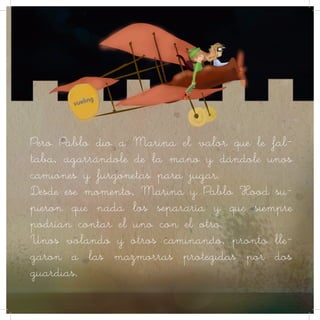 vueling
Pero Pablo dio a Marina el valor que le fal-
taba, agarrándole de la mano y dándole unos
camiones y furgonetas para jugar.
Desde ese momento, Marina y Pablo Hood su-
pieron que nada los separaría y que siempre
podrían contar el uno con el otro.
Unos volando y otros caminando, pronto lle-
garon a las mazmorras protegidas por dos
guardias.